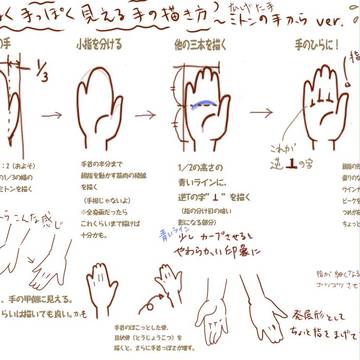 く 手っぽく 見える 手の描き方
広げた手
～ミトンの手から ver.
の手
小指を分ける
他の三本を描く
手のひらに！
1/3
これが
逆⊥の字
:2（およそ）
の1/3の幅の
ミトンを描く
手首の半分まで
線を描く
（手相じゃないよ）
※全身画だったら
これくらいまで描けば
十分かも。
1/2の高さの
青いラインに、
逆Tの字"⊥"を描く
（指の分け目の暗い
影になる部分）
青いライン
少し カーブさせると
やわらかい印象に
うこんな感じ
、手の甲側に見える。
らいは描いても良い。かも
手首のぽこっとした骨、
豆状骨（とうじょうこつ）を
描くと、さらに手首っぽさが増す。
応用形として
ちょっと指をまげて